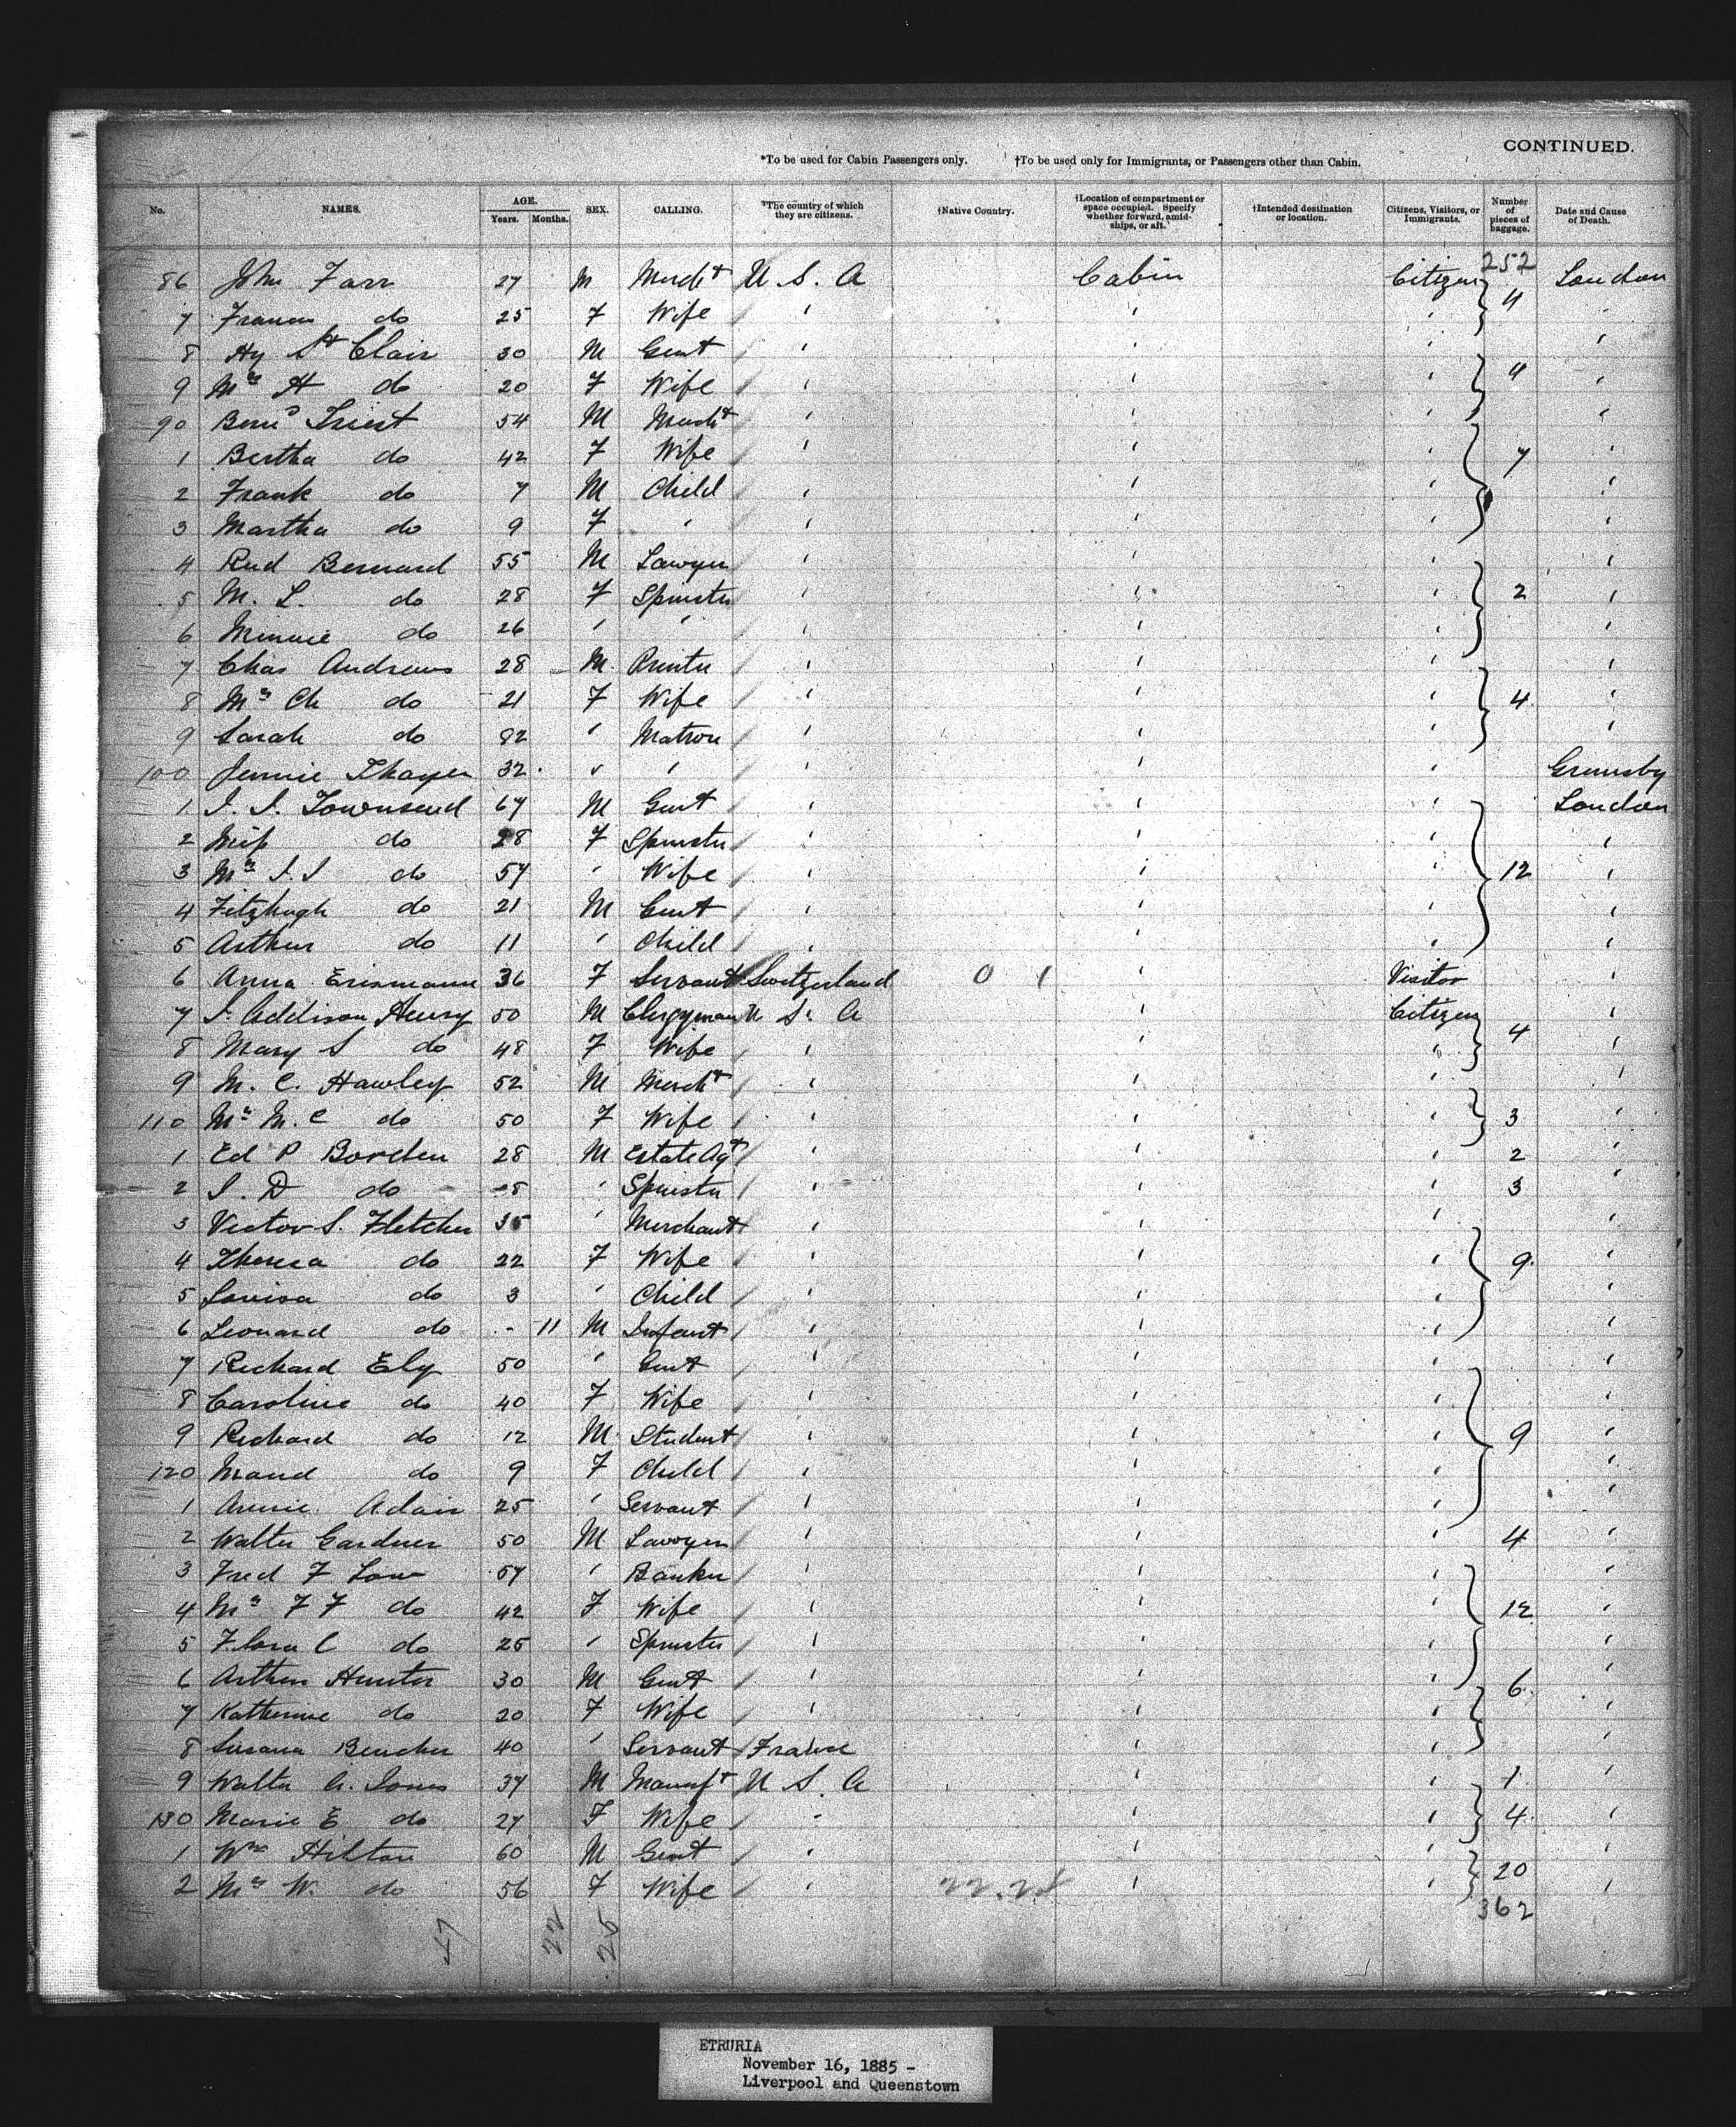 CONTINUED.
*To be used for Cabin Passengers only. †To be used only for Immigrants, or Passengers other than Cabin.
No. NAMES. AGE. Years. Months. SEX. CALLING. *The country of which they are citizens. †Native Country. †Location of compartment or space occupied. Specify whether forward, amidships, or aft. †Intended destination or location. Citizens, Visitors, or Immigrants. Number of pieces of baggage. Date and Cause of Death.
252
86 John Farr 27 M Mercht U. S. A Cabin Citizen 4 London
7 Frances do 25 F Wife ' ' ' '
8 Hy St Clair 30 M Gent ' ' ' '
9 Mrs H do 20 F Wife ' ' ' 4 '
90 Bend Triest 54 M Mercht ' ' ' '
1 Bertha do 42 F Wife ' ' ' 7 '
2 Frank do 7 M Child ' ' ' '
3 Martha do 9 F ' ' ' ' '
4 Rud Bernard 55 M Lawyer ' ' ' '
5 M. L. do 28 F Spinster ' ' ' 2 '
6 Minnie do 26 ' ' ' ' ' '
7 Chas Andrews 28 M Printer ' ' ' '
8 Mrs Ch do 21 F Wife ' ' ' 4 '
9 Sarah do 82 ' Matron ' ' ' '
100 Jennie Thayer 32 ' ' ' ' ' Grimsby
1 J. J. Townsend 67 M Gent ' ' ' London
2 Miss do 28 F Spinster ' ' ' '
3 Mrs J. J do 57 ' Wife ' ' ' 12 '
4 Fitzhugh do 21 M Gent ' ' ' '
5 Arthur do 11 ' Child ' ' ' '
6 Anna Erismann 36 F Servant Switzerland 0 1 ' Visitor '
7 J. Addison Henry 50 M Clergyman U. S. A ' Citizen '
8 Mary S do 48 F Wife ' ' ' 4 '
9 M. C. Hawley 52 M Mercht ' ' ' '
110 Mrs M. C do 50 F Wife ' ' ' 3 '
1 Ed P Borden 28 M Estate Agt ' ' ' 2 '
2 J. D do ' Spinster ' ' ' 3 '
3 Victor S. Fletcher 35 ' Merchant ' ' ' '
4 Theresa do 22 F Wife ' ' ' 9 '
5 Lovisa do 3 ' Child ' ' ' '
6 Leonard do - 11 M Infant ' ' ' '
7 Richard Ely 50 ' Gent ' ' ' '
8 Caroline do 40 F Wife ' ' ' '
9 Richard do 12 M Student ' ' ' 9 '
120 Maud do 9 F Child ' ' ' '
1 Annie Adair 25 ' Servant ' ' ' '
2 Walter Gardner 50 M Lawyer ' ' ' 4 '
3 Fred F Low 57 ' Banker ' ' ' '
4 Mrs F F do 42 F Wife ' ' ' 12 '
5 Flora C do 25 ' Spinster ' ' ' '
6 Arthur Hunter 30 M Gent ' ' ' 6 '
7 Katherine do 20 F Wife ' ' ' '
8 Susana 40 ' Servant France ' ' '
9 Walter A. Jones 37 M Manuft U S. A ' ' 1 '
130 Marie E do 27 F Wife ' ' ' 4 '
1 Wm Hilton 60 M Gent ' ' ' '
2 Mrs W. do 56 F Wife ' ' ' 20 '
362
47 22 25
ETRURIA
November 16, 1885 -
Liverpool and Queenstown